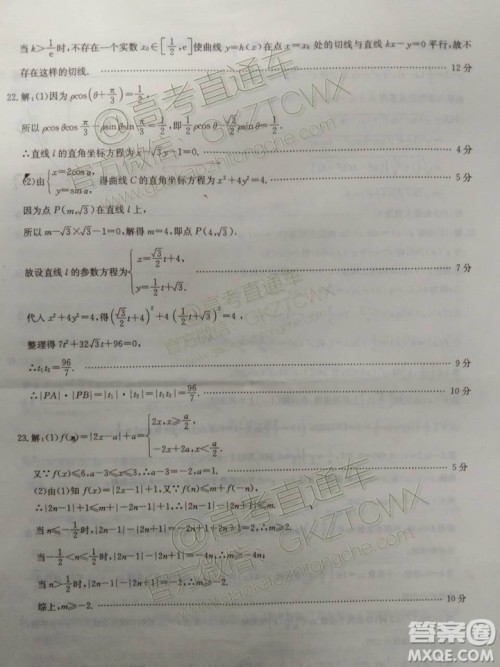 当 k>1/e 时,不存在一个实数 x₀∈[1/2,e]使曲线 y=h(x)在点 x=x₀ 处的切线与直线 kx-y=0 平行,故不
存在这样的切线. 12 分
22.解:(1)因为 ρcos(θ+π/3)=1/2,
所以 ρcosθcos π/3 ρsinθsin π/3=1/2,即 1/2 ρcosθ √3/2 ρsinθ=1/2.
∴直线 l 的直角坐标方程为 x-√3y-1=0. 4 分
(2)由{x=2cosα, y=sinα, 得曲线 C 的直角坐标方程为 x²+4y²=4.
因为点 P(m,√3)在直线 l 上,
所以 m-√3×√3-1=0,解得 m=4,即点 P(4,√3).
故设直线 l 的参数方程为{x=√3/2 t+4, y=1/2 t+√3. 7 分
代入 x²+4y²=4,得(√3/2 t+4)²+4(1/2 t+√3)²=4,
整理得 7t²+32√3t+96=0,
∴t₁t₂=96/7. 9 分
∴|PA|·|PB|=|t₁|·|t₂|=|t₁t₂|=96/7. 10 分
23.解:(1)f(x)=|2x-a|+a={2x,x≥a/2, -2x+2a,x<a/2.
又∵f(x)≤6,a-3≤x≤3,∴a-3=-2,a=1. 5 分
(2)由(1)知 f(x)=|2x-1|+1,又∵f(n)≤m+f(-n),
∴|2n-1|-|2n+1|≤m,
当 n≤-1/2 时,|2n-1|-|2n+1|=-2n+1+2n+1=2≤m;
当-1/2<n<1/2 时,|2n-1|-|2n+1|=-4n,∴m≥-4n;
当 n≥1/2 时,|2n-1|-|2n+1|=-2,∴m≥-2.
综上,m≥-2. 10 分
@高考直通车
官方微信 GKZTCWX
@高考直通车
官方微信 GKZTCWX
@高考直通车
官方微信 GKZTCWX
答案圈
MXQE.COM